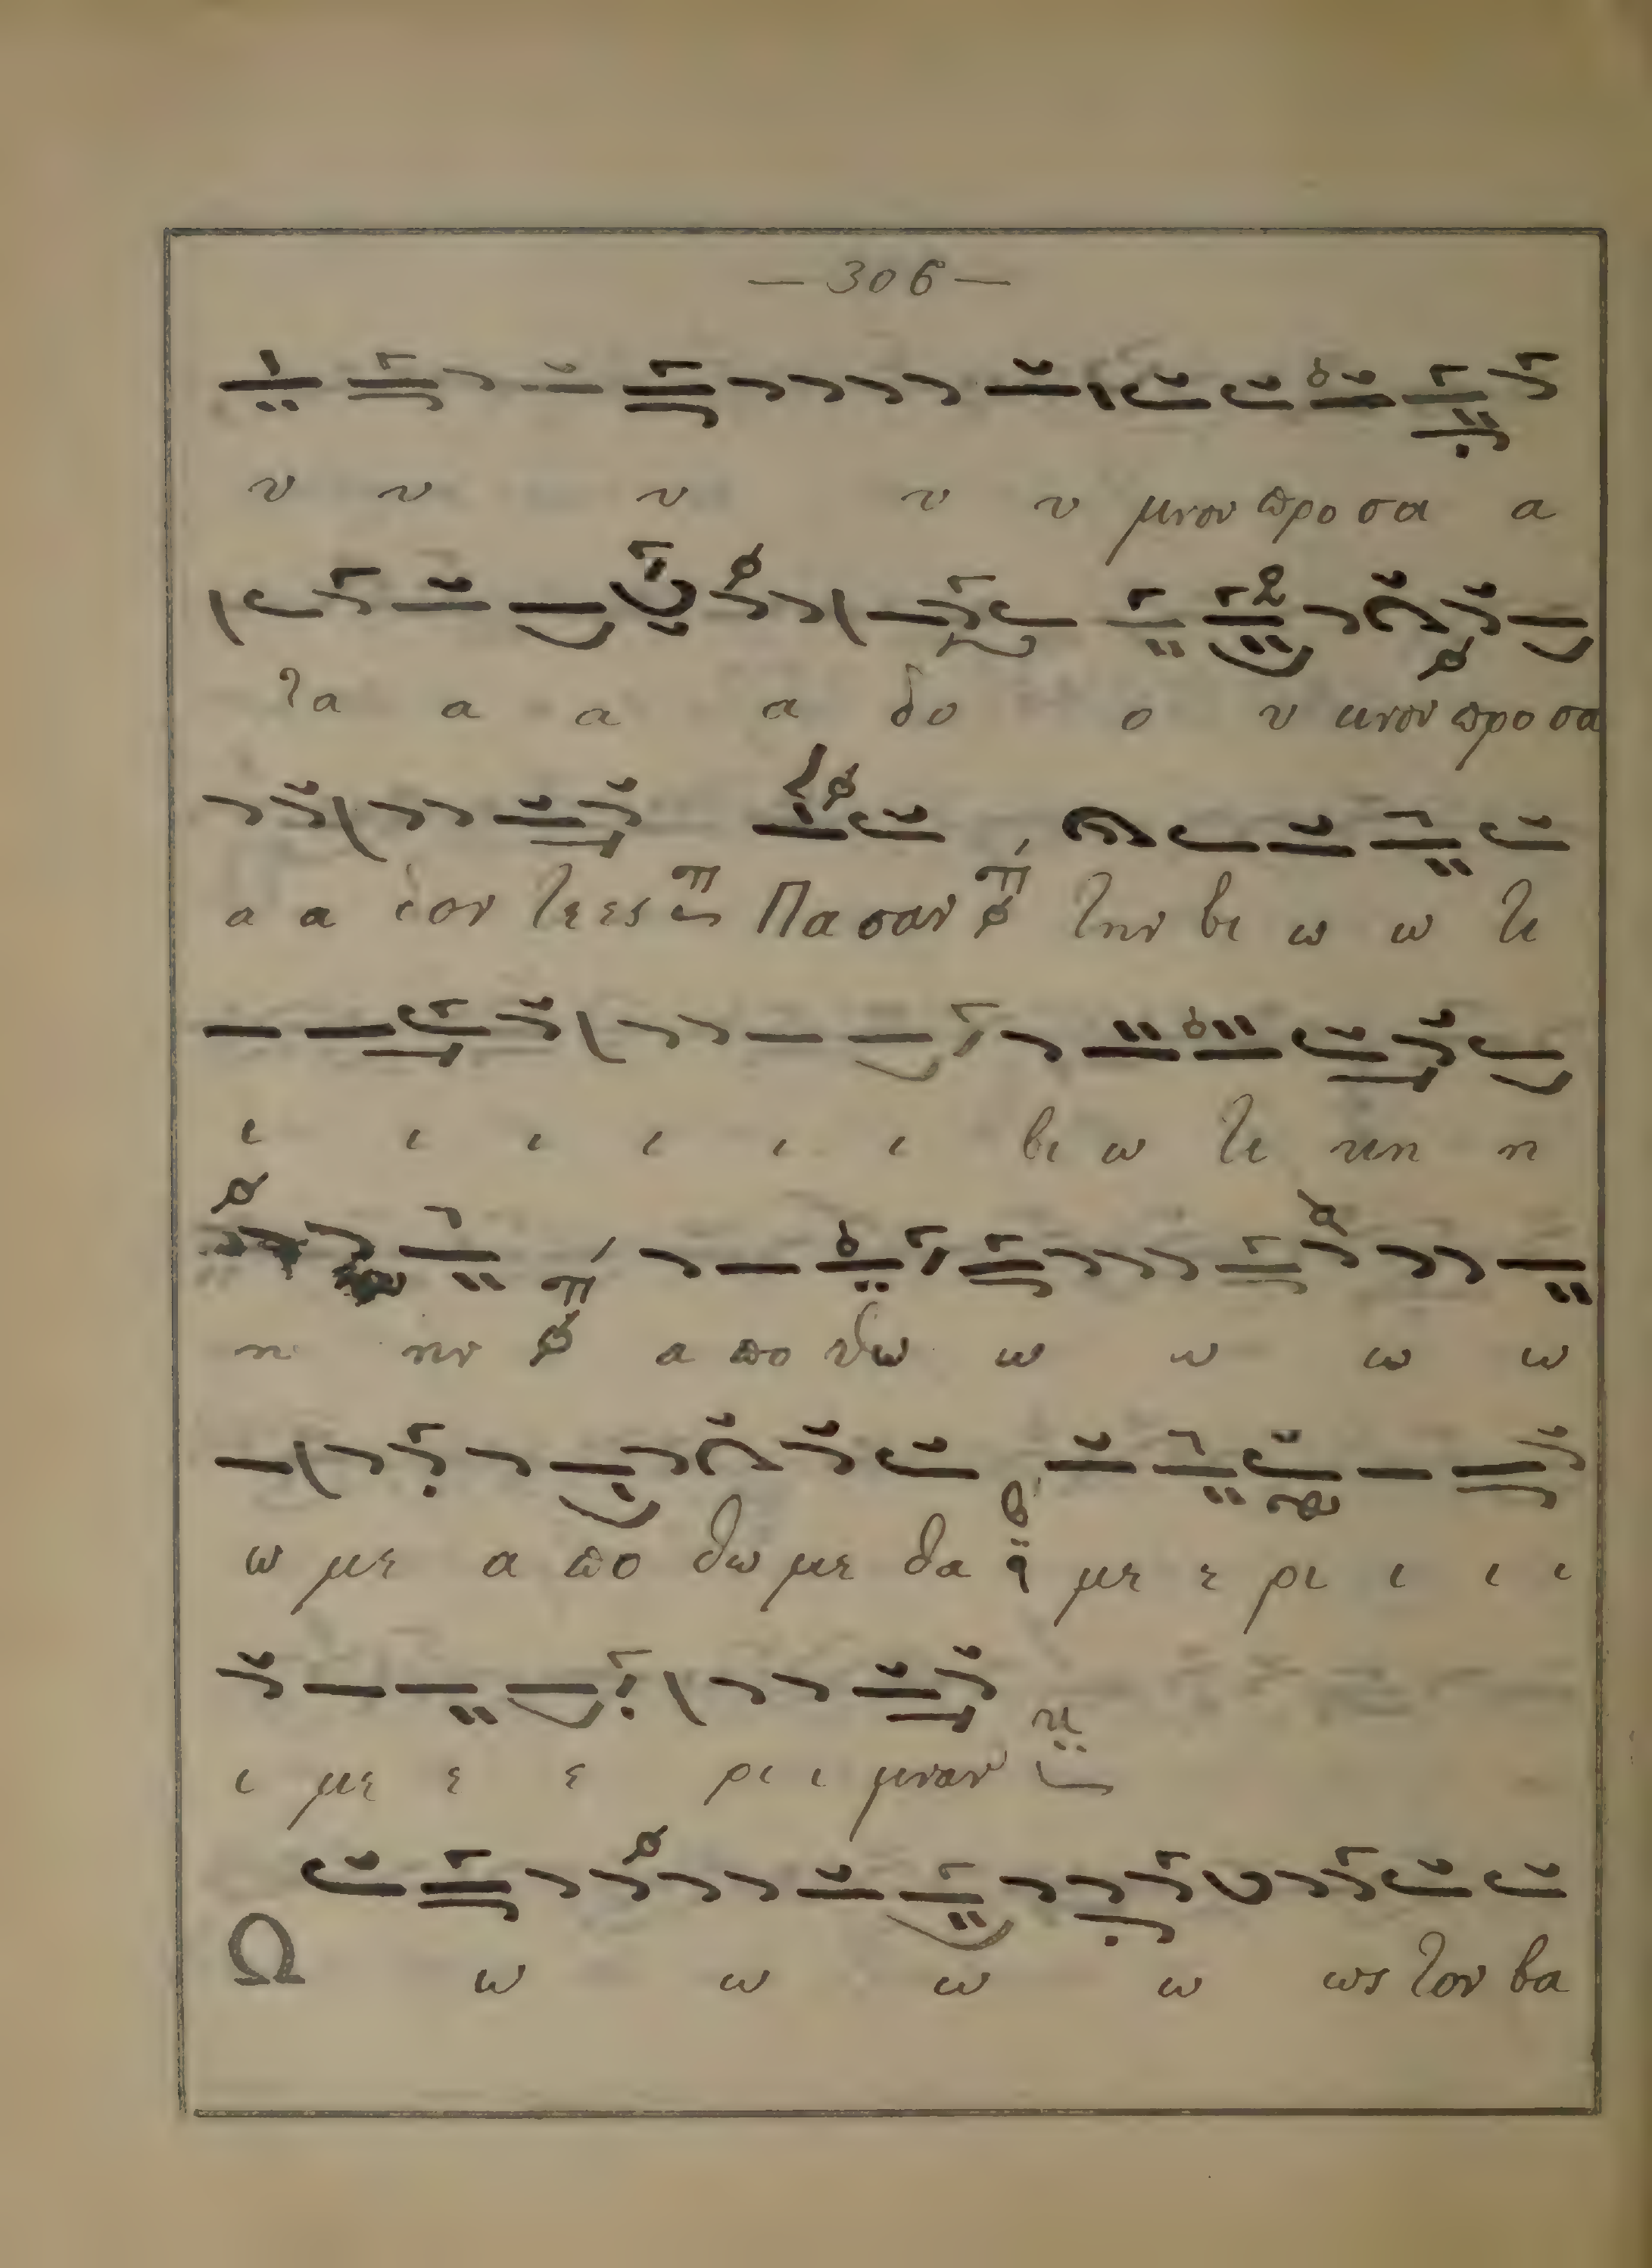 — 306 —
υ υ υ υ υ μνον προ σα α
τα α α α δο ο υ μνον προ σα
α α δον τε ες Πα σαν την βι ω ω τι
ι ι ι ι ι ι βι ω τι κη η
η ην α πο θω ω ω ω ω
ω με α πο θω με θα με ε ρι ι ι ι
ι με ε ε ρι ι μναν
Ω ω ω ω ω ως τον βα